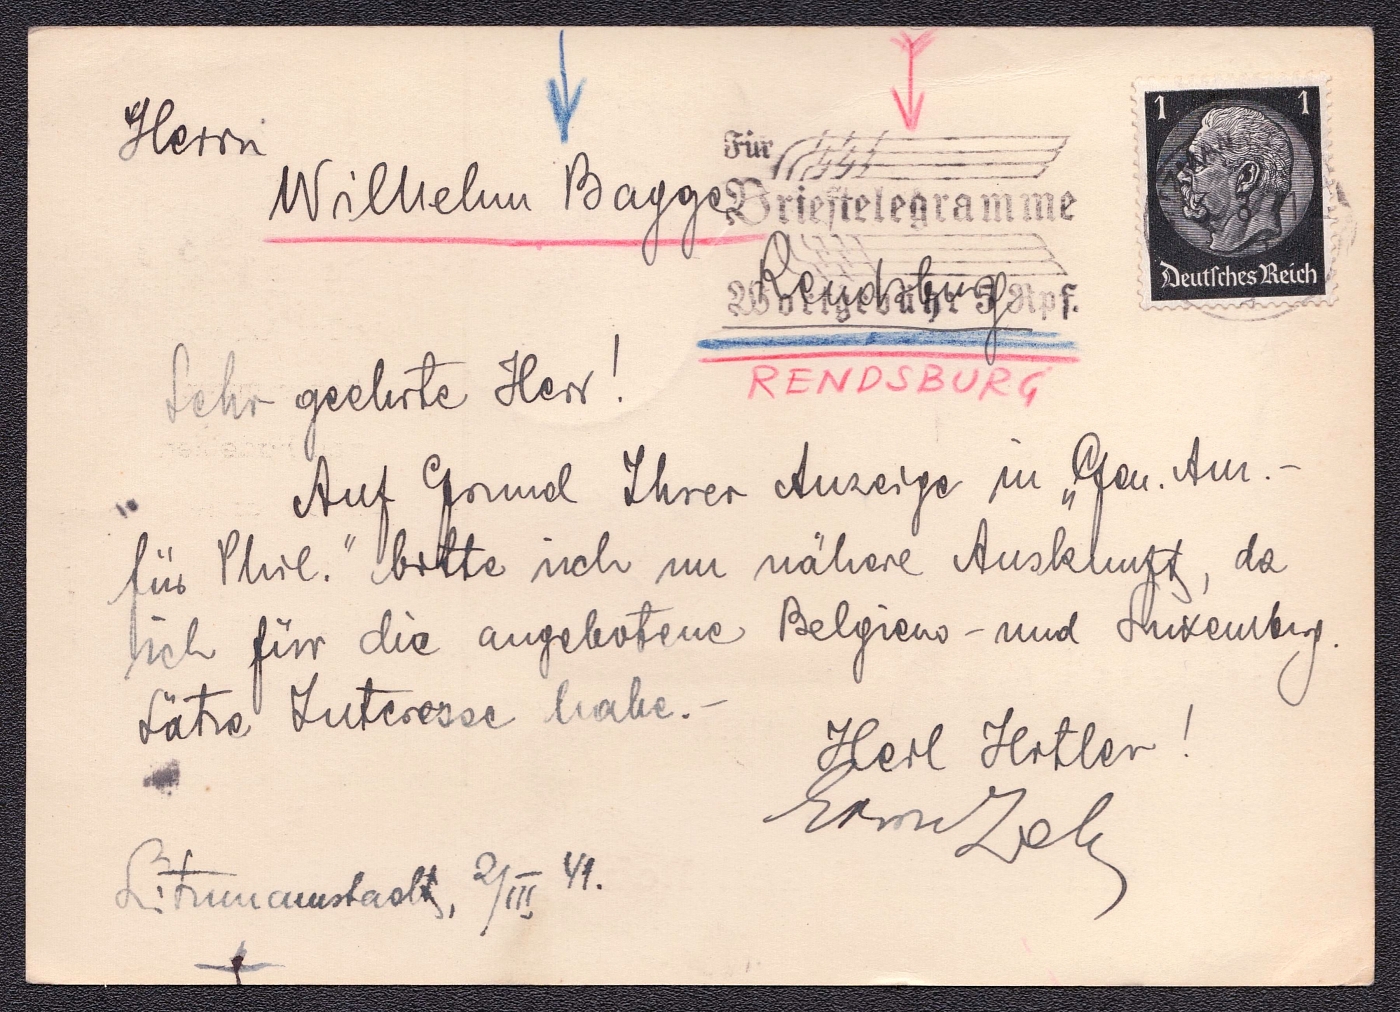 Herrn
Wilhelm Bagge
Für
Brieftelegramme
Wortgebühr 5 Rpf.
1 1
Deutsches Reich
Rendsburg
RENDSBURG
Sehr geehrte Herr!
Auf Grund Ihrer Anzeige in „ Anz.-
für Phil." bitte ich um nähere Auskunft, da
ich für die angebotene Belgiens - und Luxemburg.
Sätze Interesse habe.-
Heil Hitler!
Litzmannstadt, 2/III 41.